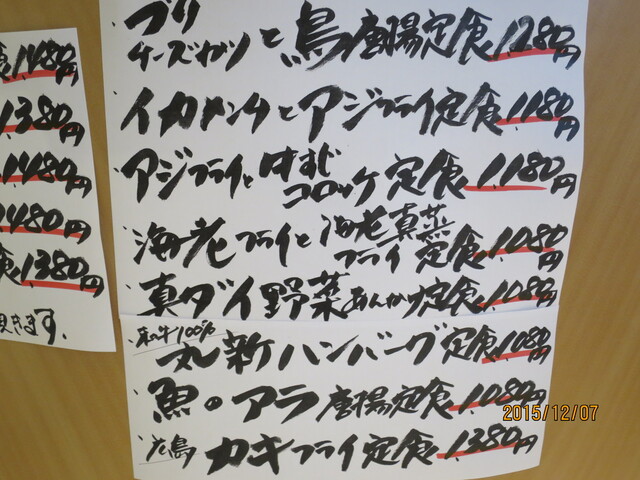 ブリ
チーズカツと鳥唐揚定食 1,280円
イカメンチとアジフライ定食 1,180円
アジフライと牛すじコロッケ定食 1,180円
海老フライと海老真蒸フライ定食 1,080円
真ダイ野菜あんかけ定食 1,080円
和牛100%
丸新ハンバーグ定食 1,080円
魚のアラ唐揚定食 1,080円
広島カキフライ定食 1,380円
食 1,480円
1,380円
1,480円
1,480円
食 1,380円
きます。
2015/12/07